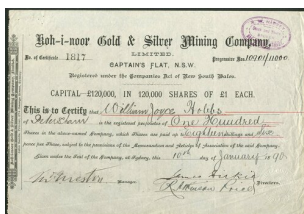 Koh-i-noor Gold & Silver Mining Company,
LIMITED.
No. of Certificate 1817 CAPTAIN'S FLAT, N.S.W. Progressive Nos 10901/11000
Registered under the Companies Act of New South Wales.
CAPITAL—£120,000, IN 120,000 SHARES OF £1 EACH.
This is to Certify that William Joyce Hobbs
of Petersham is the registered proprietor of One Hundred
Shares in the above-named Company, which Shares are paid up to Eighteen shillings and six
pence per Share, subject to the provisions of the Memorandum and Articles of Association of the said Company.
Given under the Seal of the Company, at Sydney, this 10th day of January 1890
Manager.
James
Directors.